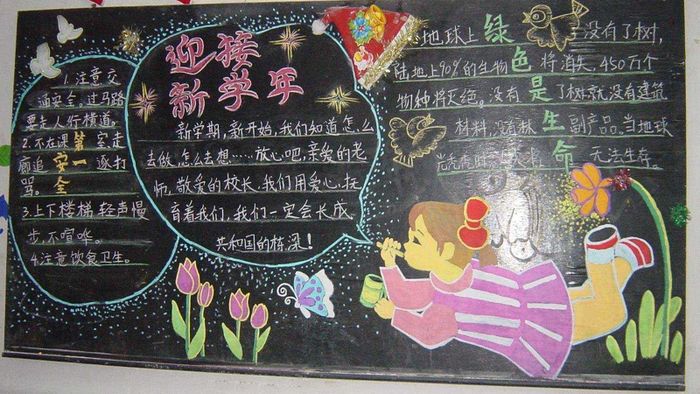 1.注意交
通安全,过马路
要走人行横道。
2.不在课第室走
廊追安一逐打
骂。全
3.上下楼梯,轻声慢
步,不喧哗。
4.注意饮食卫生。
迎接
新学年
新学期,新开始,我们知道怎么
去做,怎么去想……放心吧,亲爱的老
师,敬爱的校长,我们用爱心,抚
育着我们,我们一定会长成
共和国的栋梁!
地球上绿没有了树,
陆地上90%的生物色将消失,450万个
物种将灭绝。没有是了树就没有建筑
材料,没有林生副产品,当地球
光秃秃时命无法生存.